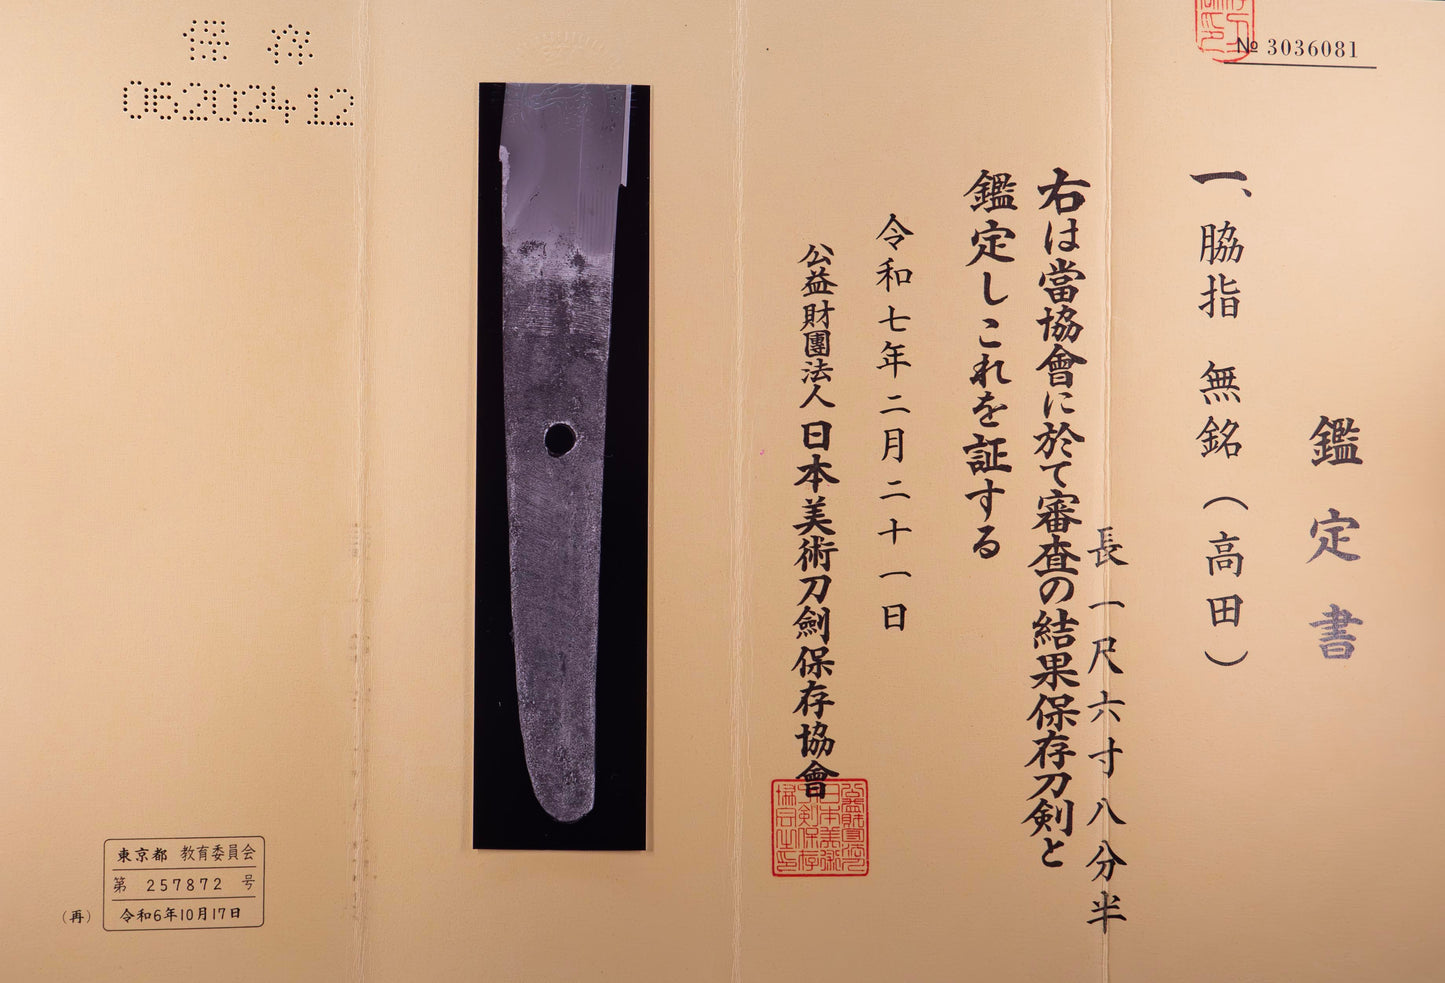 № 3036081
鑑定書
一、脇指 無銘（高田）
長一尺六寸八分半
右は當協會に於て審査の結果保存刀剣と
鑑定しこれを証する
令和七年二月二十一日
公益財團法人日本美術刀劍保存協會
保存
06202412
東京都 教育委員会
第 257872 号
（再） 令和6年10月17日